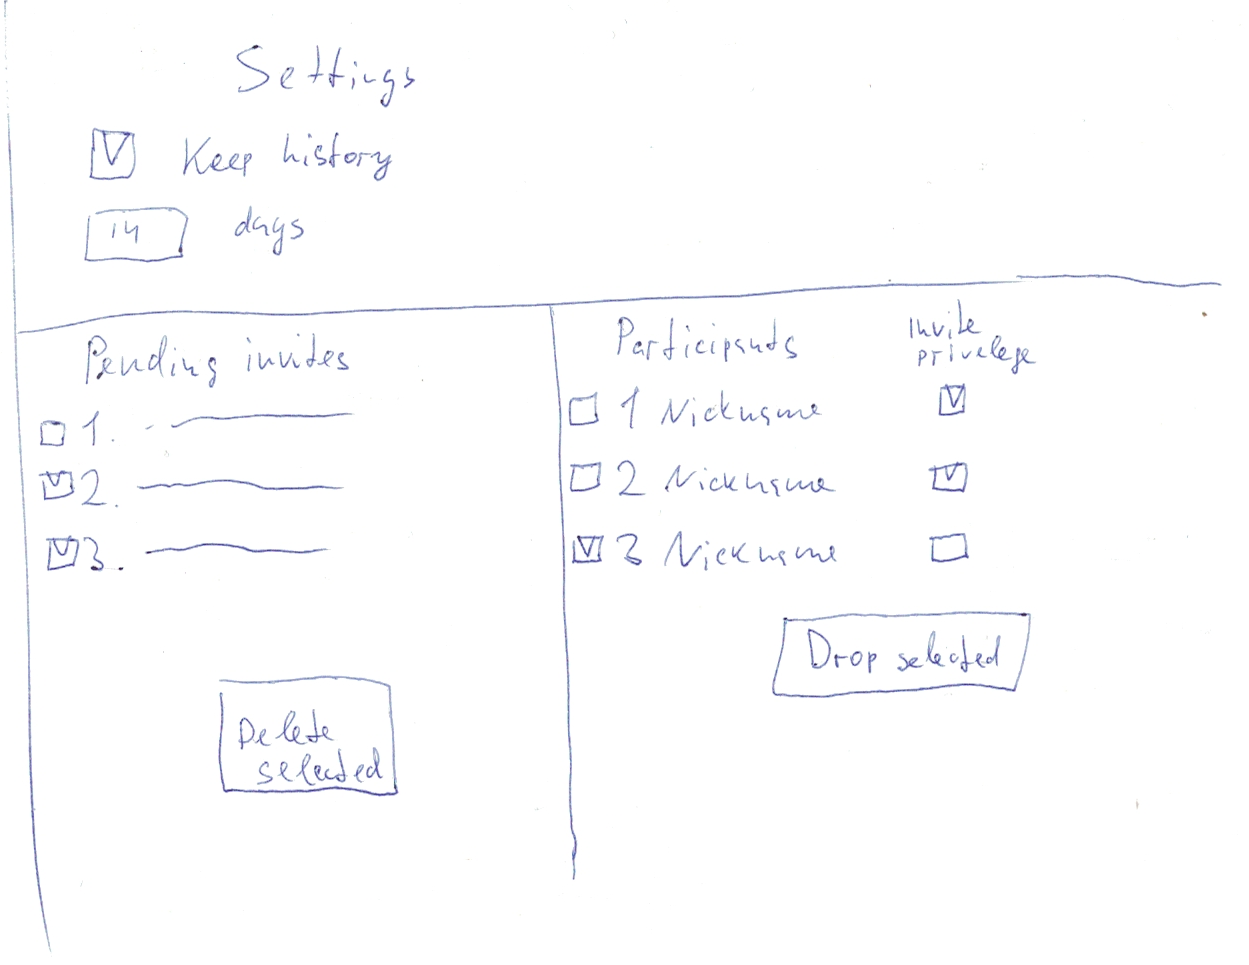 Settings
Keep history
14 days
Pending invites
1.
2.
3.
Delete
selected
Participants
Invite
privelege
1 Nickname
2 Nickname
3 Nickname
Drop selected